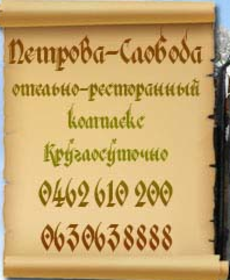 Петрова-Слобода
отельно-ресторанный
комплекс
Круглосуточно
0462 610 200
0630638888